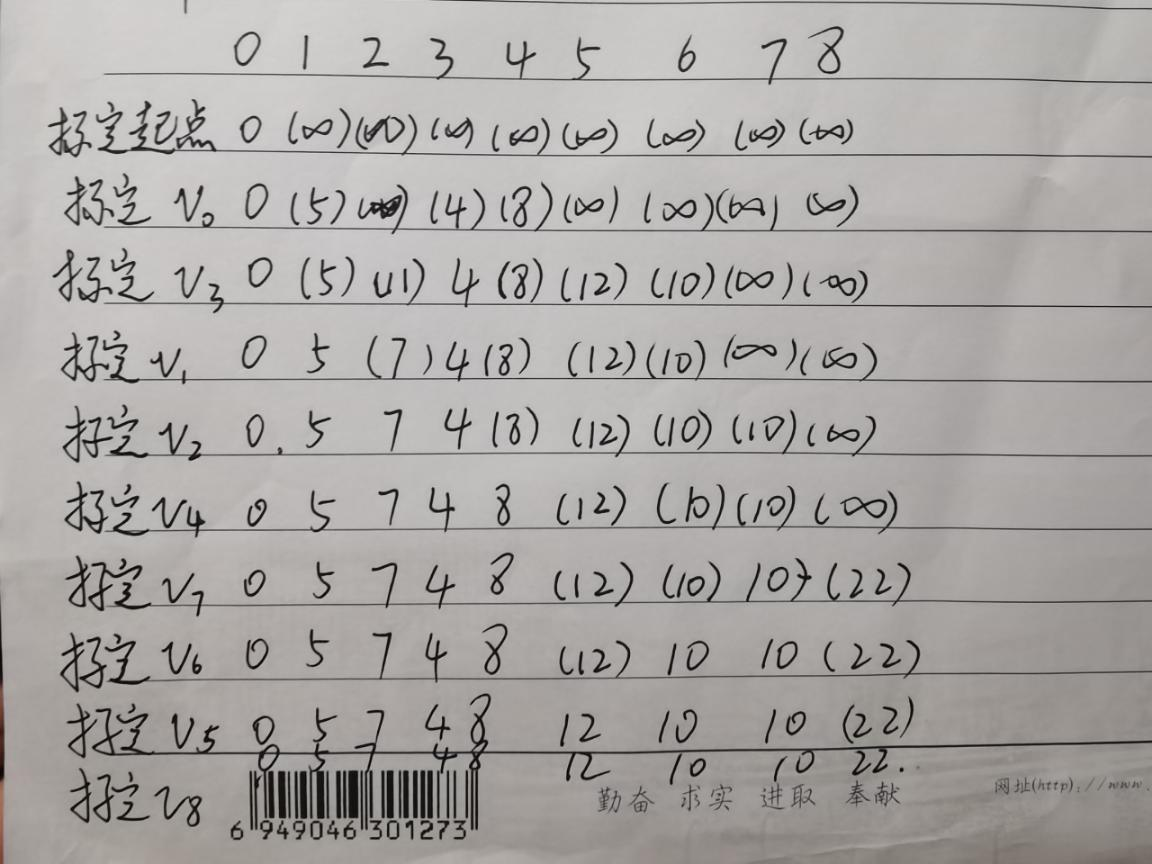 0 1 2 3 4 5 6 7 8
标定起点 0 (∞) (∞) (∞) (∞) (∞) (∞) (∞) (∞)
标定 V₀ 0 (5) (∞) (4) (8) (∞) (∞) (∞) (∞)
标定 V₃ 0 (5) (11) 4 (8) (12) (10) (∞) (∞)
标定 V₁ 0 5 (7) 4 (8) (12) (10) (∞) (∞)
标定 V₂ 0. 5 7 4 (8) (12) (10) (10) (∞)
标定 V₄ 0 5 7 4 8 (12) (10) (10) (∞)
标定 V₇ 0 5 7 4 8 (12) (10) 10 (22)
标定 V₆ 0 5 7 4 8 (12) 10 10 (22)
标定 V₅ 0 5 7 4 8 12 10 10 (22)
标定 V₈ 0 5 7 4 8 12 10 10 22.
6 949046 301273
勤奋 求实 进取 奉献
网址(http)://www.